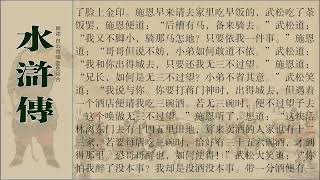 水滸傳
了臉上金印。施恩早來請去家裡吃早飯的。武松吃了茶
飯罷，施恩便道：“後槽有馬，备來騎去。”武松道：
“我又不腳小，騎那馬怎地？只要依我一件事。”施恩
道：“哥哥但說不妨，小弟如何敢道不依。”武松道：
“我和你出得城去，只要还我无三不过望。”施恩道：
“兄长，如何是无三不过望？小弟不省其意。”武松笑
道：“我说与你。你要打蒋门神时，出得城去，但遇着
一个酒店便请我吃三碗酒，若无三碗时，便不过望子去
，这个唤做无三不过望。”施恩听了，想道：“这快活
林离东门去有十四五里田地，算来卖酒的人家也有十二
三家，若要每店吃三碗时，恰好有三十五六碗酒，才到
得那里。恐哥哥醉也，如何使得！”武松大笑道：“你
怕我醉了没本事？我却是没酒没本事。带一分酒便有一